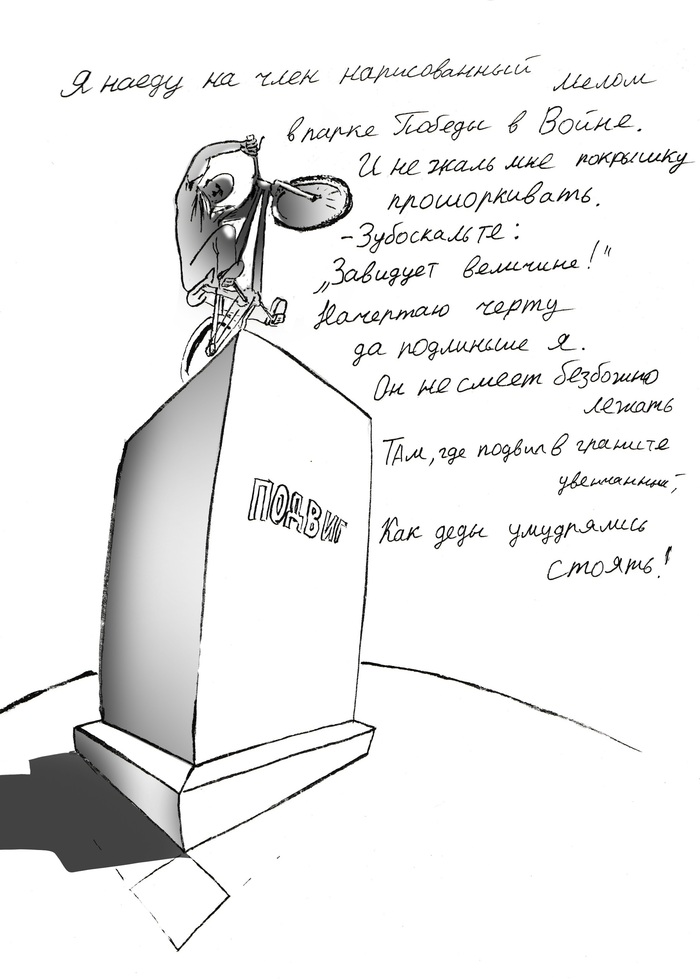 Я наеду на член написованный мелом
в парке Победы в Войне.
И не жаль мне покрышку
прошоркивать.
-Зубоскальте:
„Завидует величине!"
Начертаю черту
да подлиньше я.
Он не смеет безбожно
лежать
Там, где подвиг в граните
увенчанный,
Как деды умудрялись
стоять!
ПОДВИГ